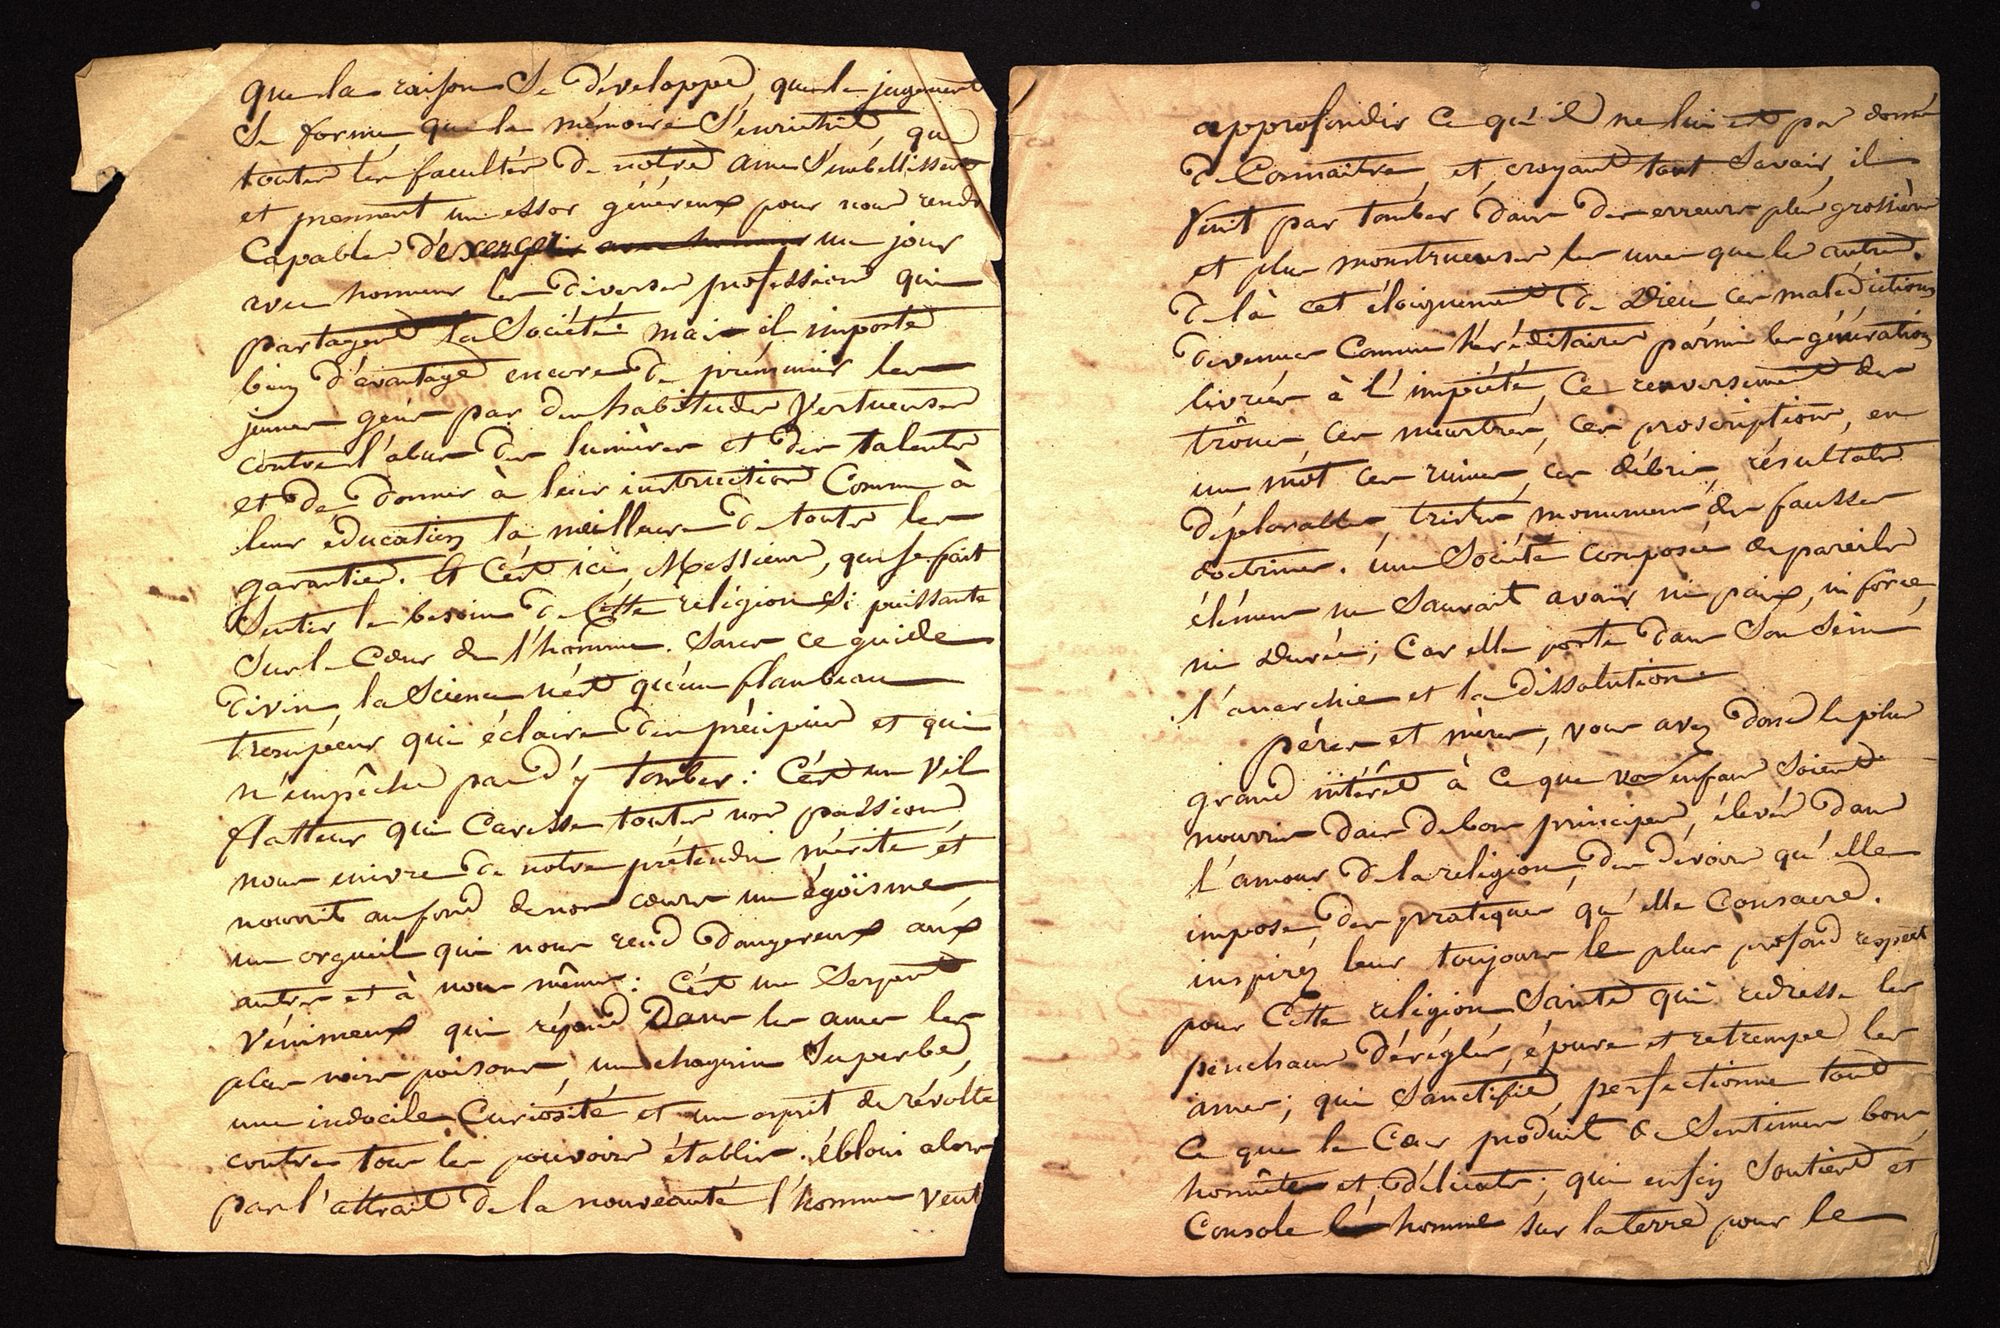 que la raison se développe, que le jugement
se forme, que la mémoire s'enrichit, que
toutes les facultés de notre ame s'embellissent
et prennent un essor généreux pour nous rendre
capables d'exercer avec honneur un jour
avec honneur les diverses professions qui
partagent la Société. mais il importe
bien d'avantage encore de prémunir les
jeunes gens par des habitudes vertueuses
contre l'abus des lumières et des talents
et de donner à leur instruction comme à
leur éducation la meilleure de toutes les
garanties. Et c'est ici, Messieurs, que se fait
sentir le besoin de cette religion si puissante
sur le cœur de l'homme. sans ce guide
divin, la science n'est qu'un flambeau
trompeur qui éclaire des précipices et qui
n'empêche pas d'y tomber: c'est un vil
flatteur qui caresse toutes nos passions,
nous enivre de notre prétendu mérite et
nourrit au fond de nos cœurs un égoïsme,
un orgueil qui nous rend dangereux aux
autres et à nous mêmes: c'est un serpent
vénimeux qui répand dans les ames les
plus noirs poisons, un chagrin superbe,
une indocile curiosité et un esprit de révolte
contre tous les pouvoirs établis. ébloui alors
par l'attrait de la nouveauté l'homme veut
approfondir ce qu'il ne lui est pas donné
de connaître, et, croyant tout savoir, il
finit par tomber dans des erreurs plus grossières
et plus monstrueuses les unes que les autres.
de là cet éloignement de Dieu, ces malédictions
devenues comme héréditaires parmi les générations
livrées à l'impiété, ce renversement des
trônes, ces meurtres, ces proscriptions, en
un mot ces ruines, ces débris, résultats
déplorables, tristes monumens des fausses
doctrines. une Société composée de pareils
élémens ne saurait avoir ni paix, ni force,
ni durée; car elle porte dans son sein
l'anarchie et la dissolution.
pères et mères, vous avez donc le plus
grand intérêt à ce que vos enfans soient
nourris dans de bons principes, élevés dans
l'amour de la religion, des devoirs qu'elle
impose, des pratiques qu'elle consacre.
inspirez leur toujours le plus profond respect
pour cette religion Sainte qui redresse les
penchans déréglés, épure et retrempe les
ames; qui sanctifie, perfectionne tout
ce que le cœur produit de sentimens bons,
honnêtes et délicats; qui enfin soutient et
console l'homme sur la terre pour le